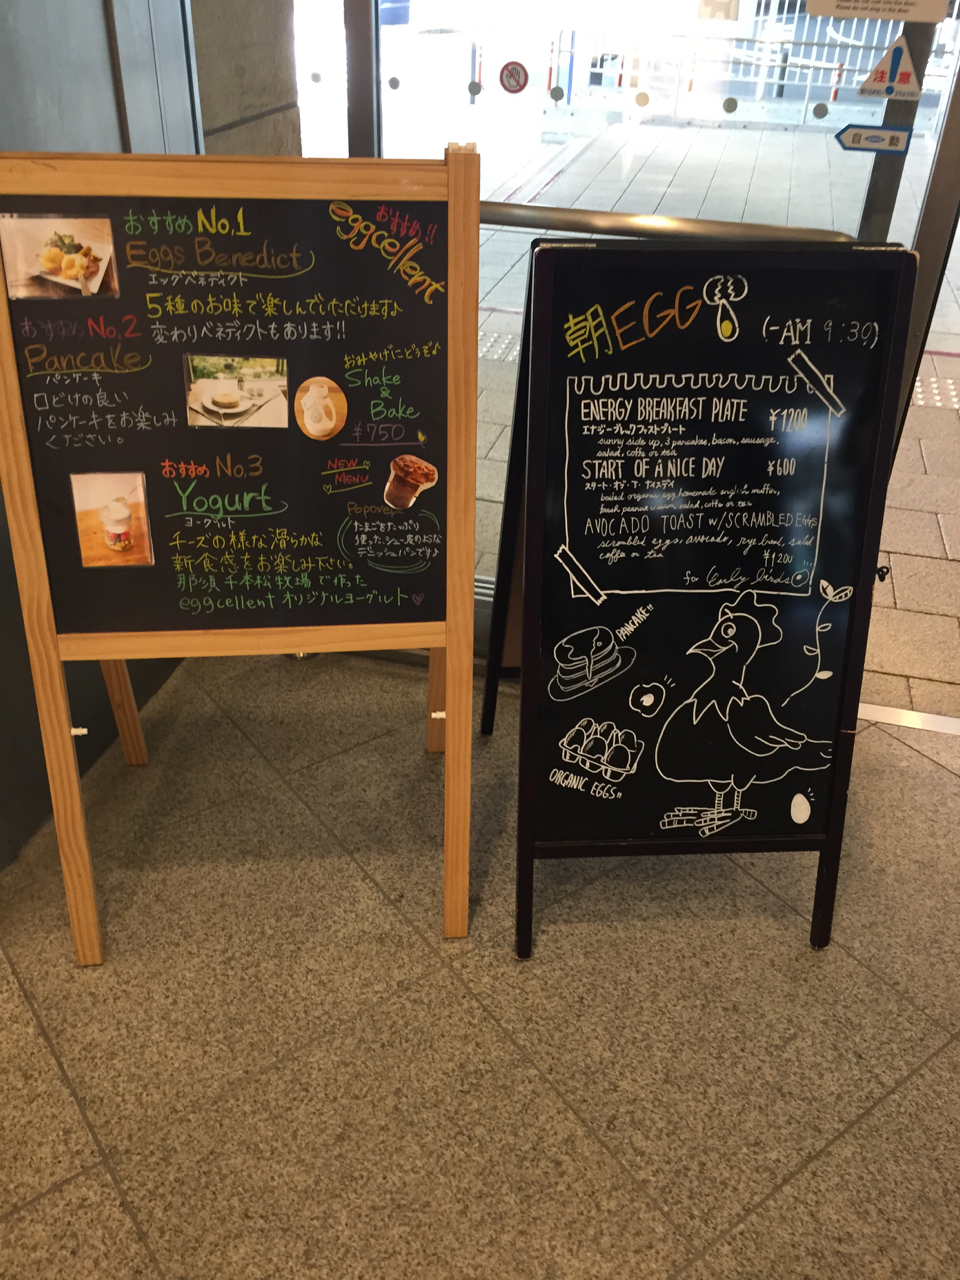 おすすめ No.1
Eggs Benedict
エッグベネディクト
5種のお味で楽しんでいただけます♪
変わりベネディクトもあります!!
おすすめ!!
eggcellent
おすすめ No.2
Pancake
パンケーキ
口どけの良い
パンケーキをお楽しみ
ください。
おみやげにどうぞ♪
Shake
&
Bake
¥750
おすすめ No.3
Yogurt
ヨーグルト
チーズの様な滑らかな
新食感をお楽しみ下さい。
那須千本松牧場で作った
eggcellent オリジナルヨーグルト
NEW
MENU
Popover
たまごをたっぷり
使った、シュー皮のような
デニッシュパンです♪
朝EGG
(-AM 9:30)
ENERGY BREAKFAST PLATE ¥1200
エナジーブレックファストプレート
sunny side up, 3 pancakes, bacon, sausage,
salad, coffe or tea
START OF A NICE DAY ¥600
スタート・オブ・ア・ナイスデイ
boiled organic egg homemade english muffin,
salad, coffe or tea
AVOCADO TOAST W/SCRAMBLED Eggs
scrambled eggs, avocado, rye bread, salad
coffee or tea
¥1200
for Early birds
PANCAKE!!
ORGANIC EGGS!!
注意
自動